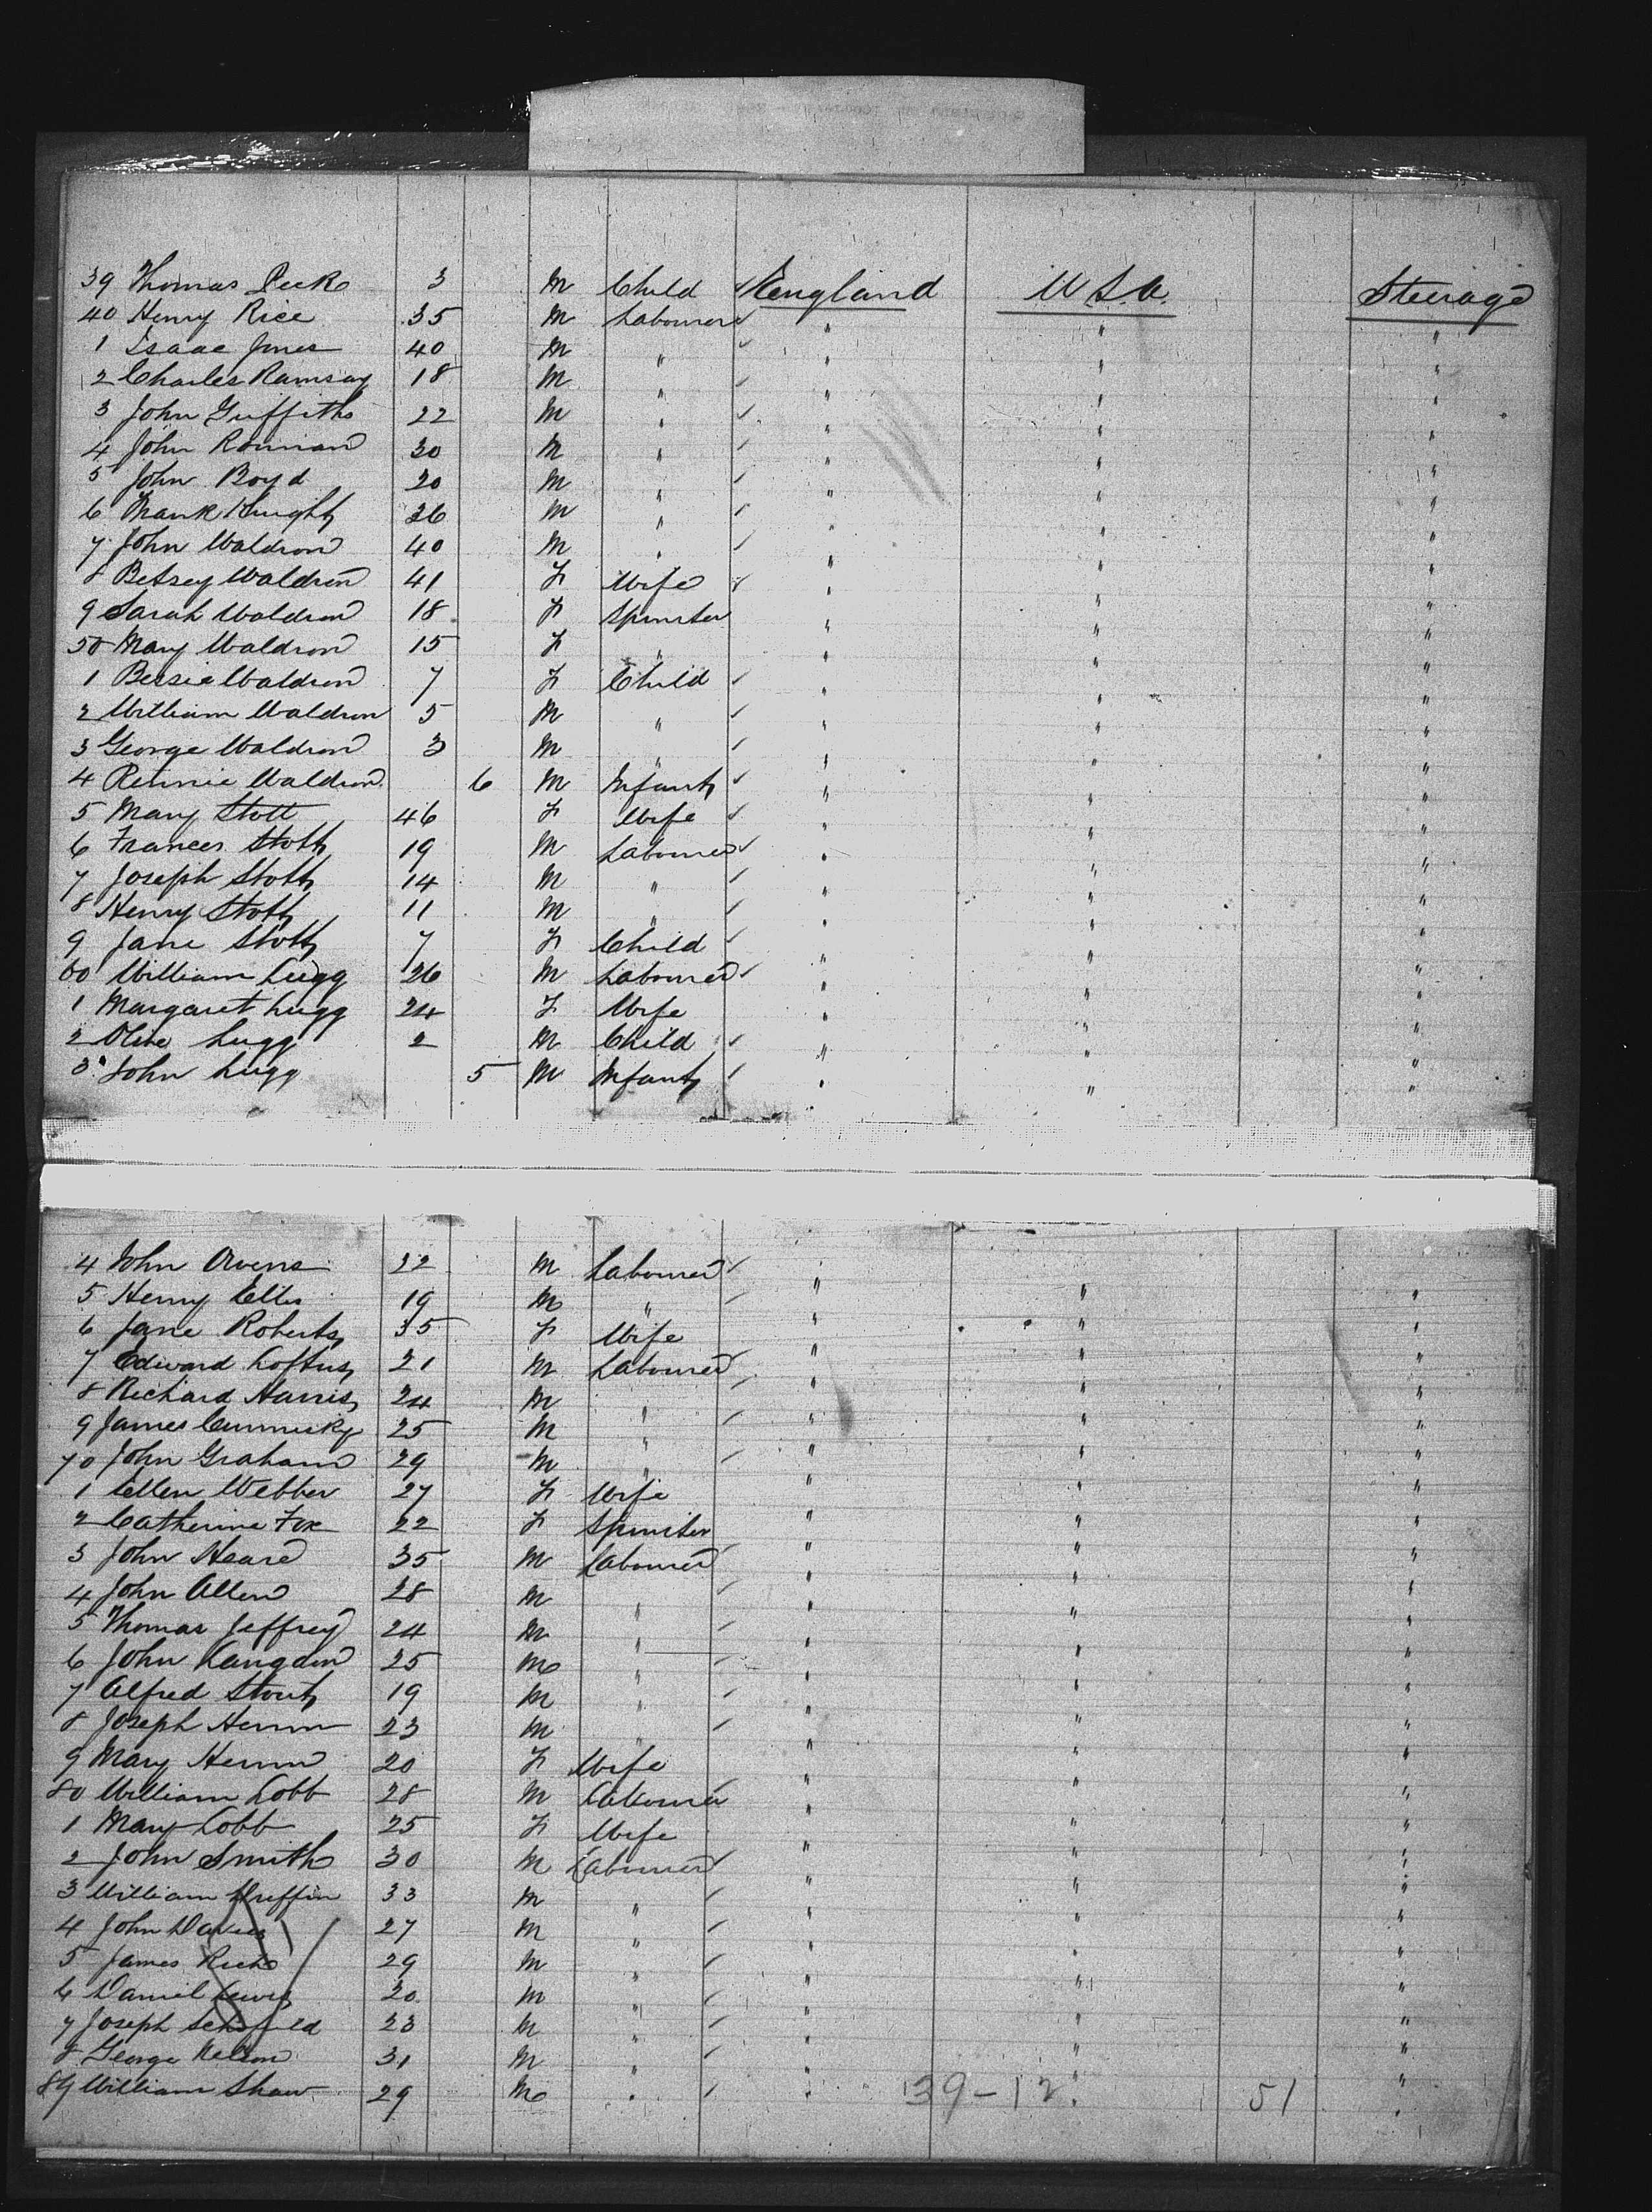 39 Thomas Peek 3 M Child England U.S.A. Steerage
40 Henry Rice 35 M Labourer " " "
1 Isaac Jones 40 M " " " "
2 Charles Ramsay 18 M " " " "
3 John Griffiths 22 M " " " "
4 John 30 M " " " "
5 John Boyd 20 M " " " "
6 Frank Knight 26 M " " " "
7 John Waldron 40 M " " " "
8 Betsey Waldron 41 F Wife " " "
9 Sarah Waldron 18 F Spinster " " "
50 Mary Waldron 15 F " " " "
1 Bessie Waldron 7 F Child " " "
2 William Waldron 5 M " " " "
3 George Waldron 3 M " " " "
4 Rennie Waldron 6 M Infant " " "
5 Mary Stott 46 F Wife " " "
6 Frances Stott 19 M Labourer " " "
7 Joseph Stott 14 M " " " "
8 Henry Stott 11 M " " " "
9 Jane Stott 7 F Child " " "
60 William Lugg 26 M Labourer " " "
1 Margaret Lugg 24 F Wife " " "
2 Olive Lugg 2 M Child " " "
3 John Lugg 5 M Infant " " "
4 John Owens 22 M Labourer " " "
5 Henry Ellis 19 M " " " "
6 Jane Roberts 35 F Wife " " "
7 Edward Loftus 21 M Labourer " " "
8 Richard Harris 24 M " " " "
9 James Cummisky 25 M " " " "
70 John Graham 29 M " " " "
1 Ellen Webber 27 F Wife " " "
2 Catherine Fox 22 F Spinster " " "
3 John Heard 35 M Labourer " " "
4 John Allen 28 M " " " "
5 Thomas Jeffrey 24 M " " " "
6 John Langdon 25 M " " " "
7 Alfred Stout 19 M " " " "
8 Joseph 23 M " " " "
9 Mary 20 F Wife " " "
80 William Cobb 28 M Labourer " " "
1 Mary Cobb 25 F Wife " " "
2 John Smith 30 M Labourer " " "
3 William 33 M " " " "
4 John Davies 27 M " " " "
5 James 29 M " " " "
6 Daniel Lewis 20 M " " " "
7 Joseph Schofield 23 M " " " "
8 George Nelson 31 M " " " "
89 William Shaw 29 M " " " "
39-12 51